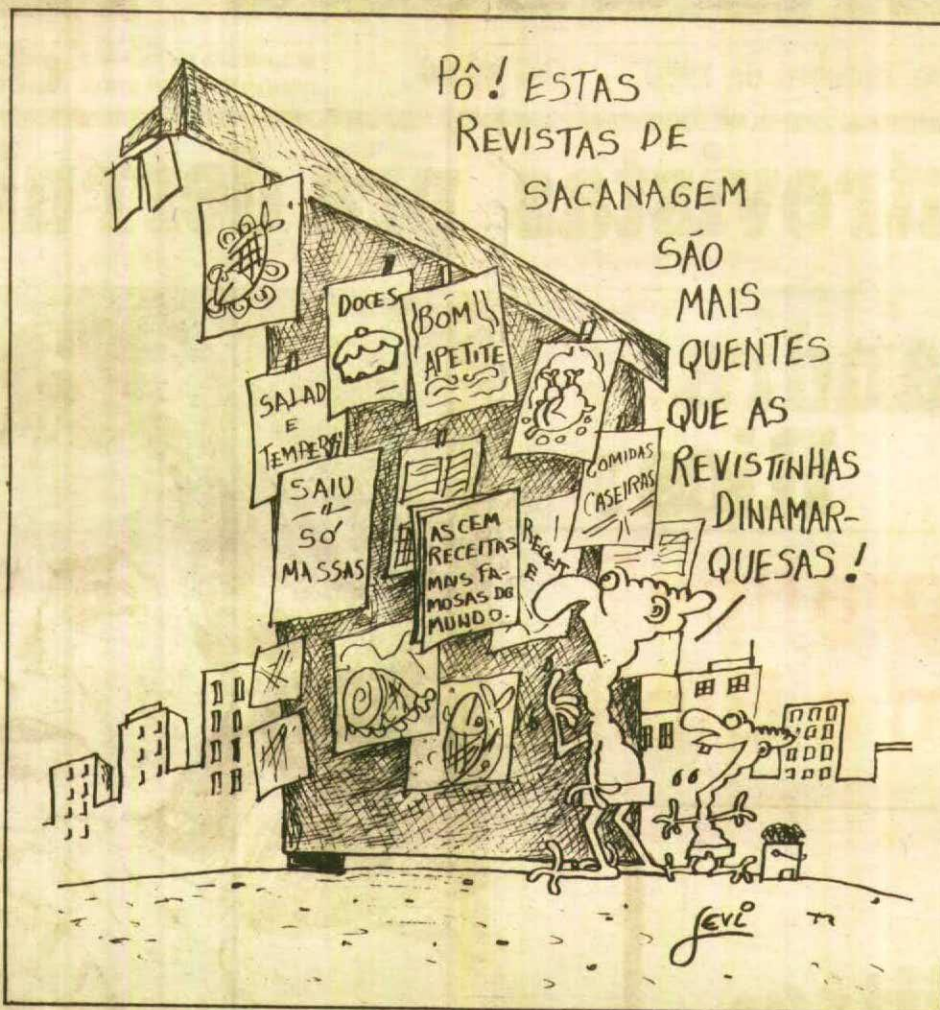 PÔ! ESTAS
REVISTAS DE
SACANAGEM
SÃO
MAIS
QUENTES
QUE AS
REVISTINHAS
DINAMAR-
QUESAS!
DOCES
BOM
APETITE
SALAD
E
TEMPER
SAIU
SÓ
MASSAS
AS CEM
RECEITAS
MAIS FA-
MOSAS DO
MUNDO.
RECEIT
E
COMIDAS
CASEIRAS